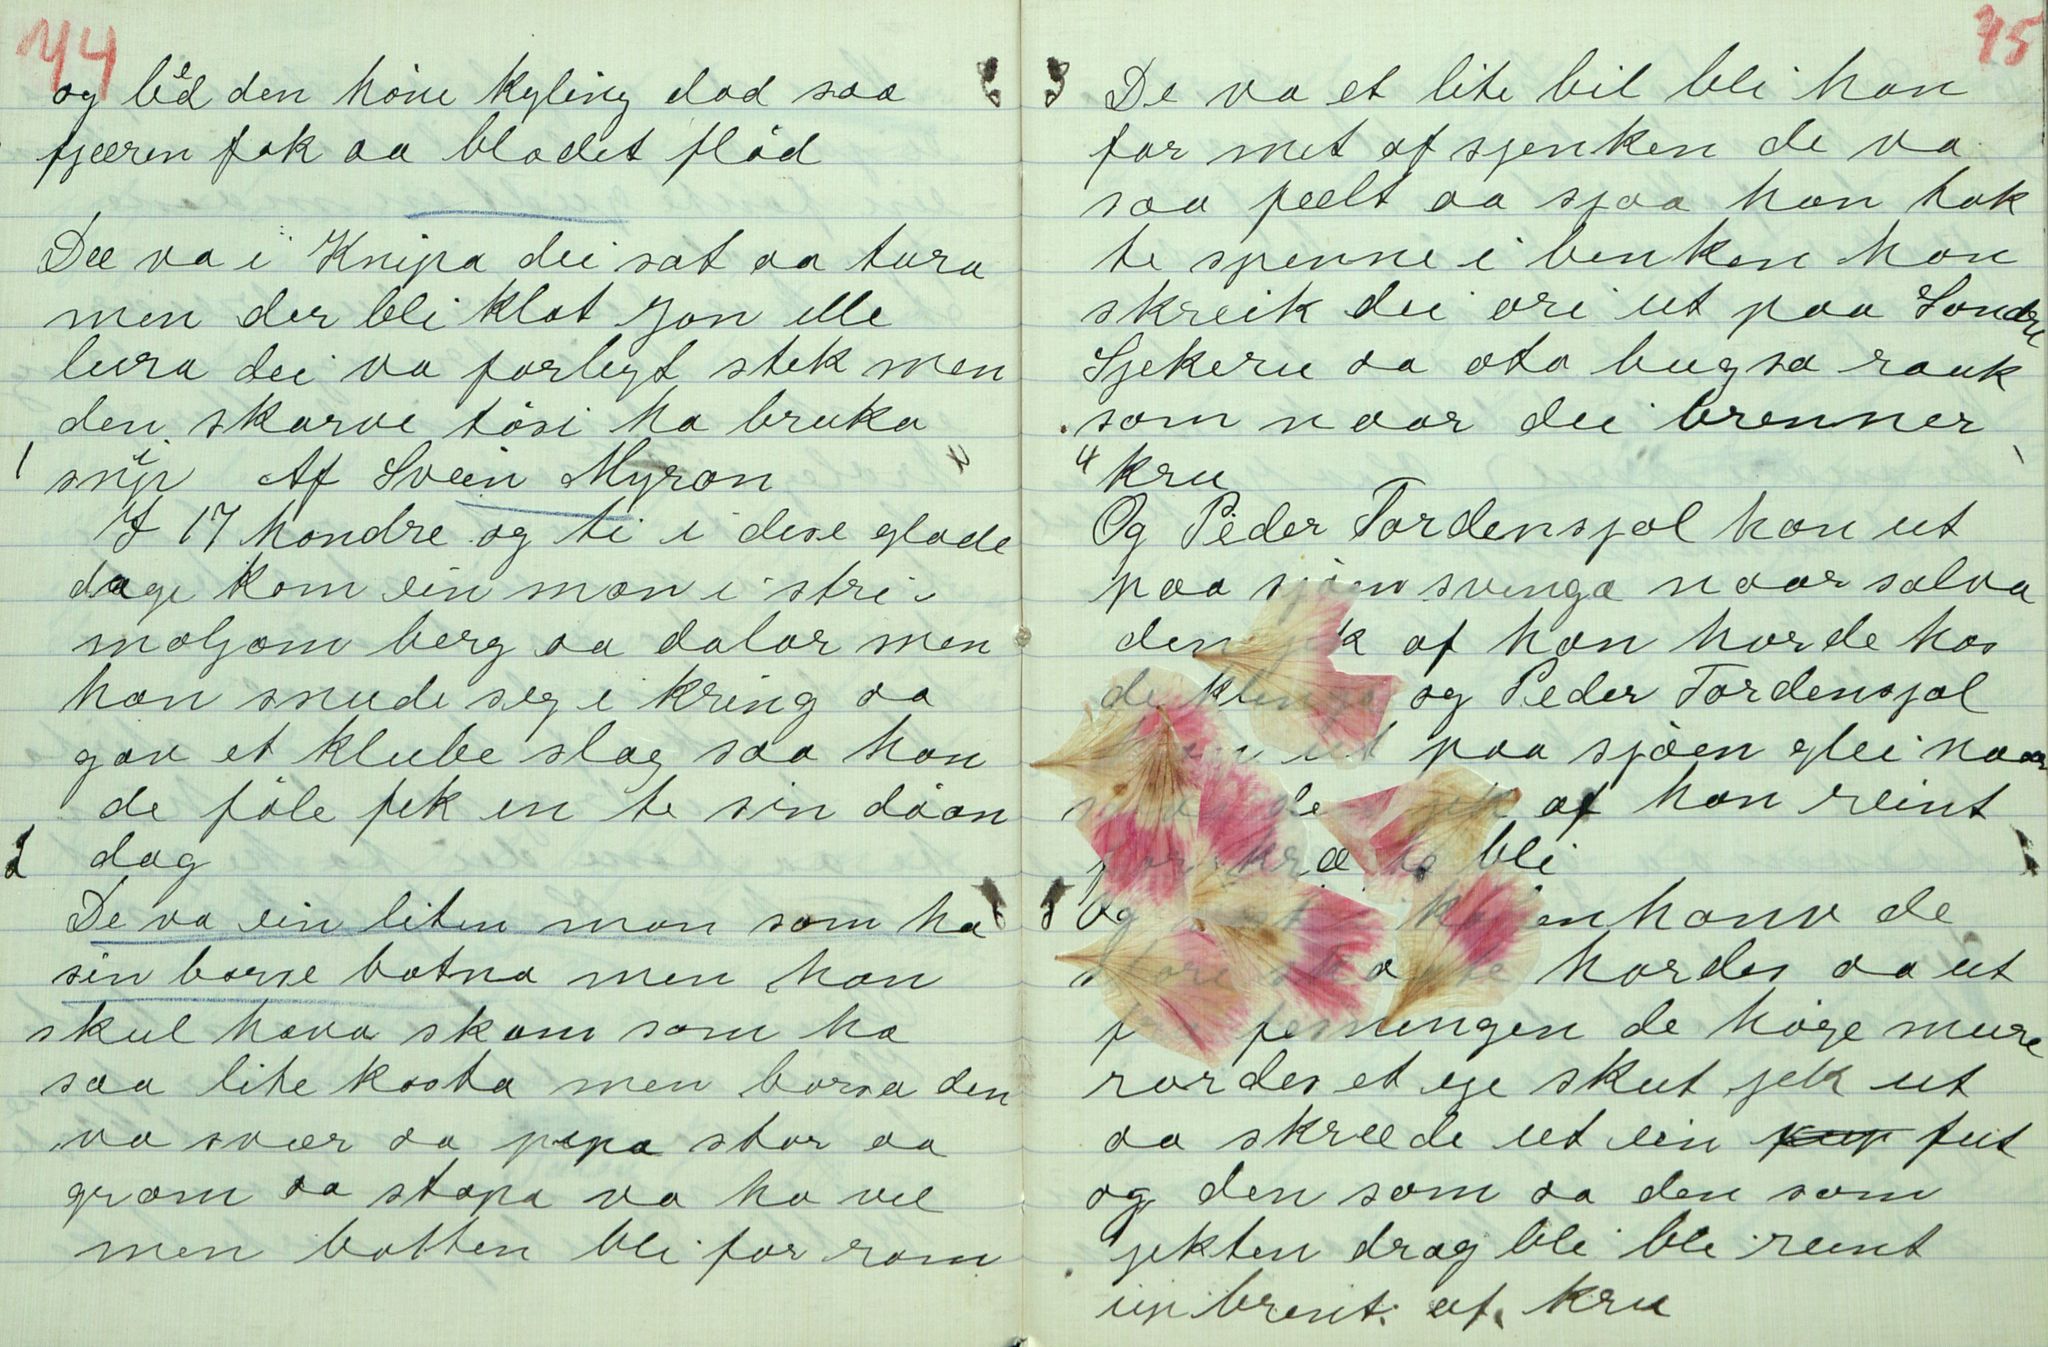 44
og lËd den høne kyling dod saa
fjæren fok aa blodet flød
Dee va i Knipa dei sat aa tura
men der bli klat Jon ille
lura dei va forligt stek men
den skarve tøsi ha bruka
1 snip Af Svein Myron
I 17 hondre og ti i dese glade
dage kom ein man i stri-
moljom berg aa dalar men
han snude seg i kring aa
gav et klube slag saa han
de føle fek en te sin døan
2 dag
De va ein liten man som ha
sin børse botna men han
skul hava skam som ha
saa lite kosta men børsa den
va svær aa pipa stor aa
gram aa stapa va ho vel
men botten bli for ram
75
3 De va et lite bil bli han
for met af sjenken de va
saa feelt aa sjaa han tok
te spenne i benken han
skreik dei ori ut paa Sondre
Sjekeru aa ota bugsa rauk
som naar dei brenner
4 kru
Og Peder Tordensjol han ut
paa sjøen svinga naar salva
den jik af han horde hos
de klinga og Peder Tordensjol
ut paa sjøen glei naar
den jik af han reint
bli
Og hanv de
hordes aa ut
festningen de høge mure
rordes et eje skut jek ut
aa skreede ut ein fut
og den som aa den som
jekten drog bli bli reint
up brent. af. kru